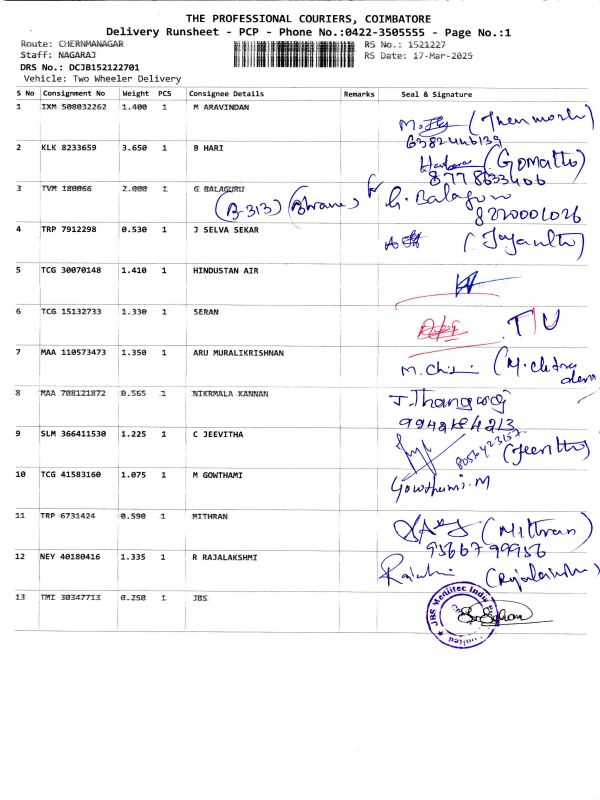 THE PROFESSIONAL COURIERS, COIMBATORE
Delivery Runsheet - PCP - Phone No.:0422-3505555 - Page No.:1
Route: CHERNMANAGAR RS No.: 1521227
Staff: NAGARAJ RS Date: 17-Mar-2025
DRS No.: DCJB152122701
Vehicle: Two Wheeler Delivery
S No Consignment No Weight PCS Consignee Details Remarks Seal & Signature
1 IXM 508032262 1.400 1 M ARAVINDAN
6382446139
2 KLK 8233659 3.650 1 B HARI (Gomathi)
8778633406
3 TVM 180066 2.000 1 G BALAGURU G. Balaguru
(B-313) 8220001026
4 TRP 7912298 0.530 1 J SELVA SEKAR
5 TCG 30070148 1.410 1 HINDUSTAN AIR
6 TCG 15132733 1.330 1 SERAN
7 MAA 110573473 1.350 1 ARU MURALIKRISHNAN
8 MAA 708121872 0.565 1 NIKRMALA KANNAN J. Thangaraj
9 SLM 366411530 1.225 1 C JEEVITHA
10 TCG 41583160 1.075 1 M GOWTHAMI Gowthami.M
11 TRP 6731424 0.590 1 MITHRAN (Mithran)
9566799956
12 NEY 40180416 1.335 1 R RAJALAKSHMI
13 TMI 30347713 0.250 1 JBS
JBS Meditec India